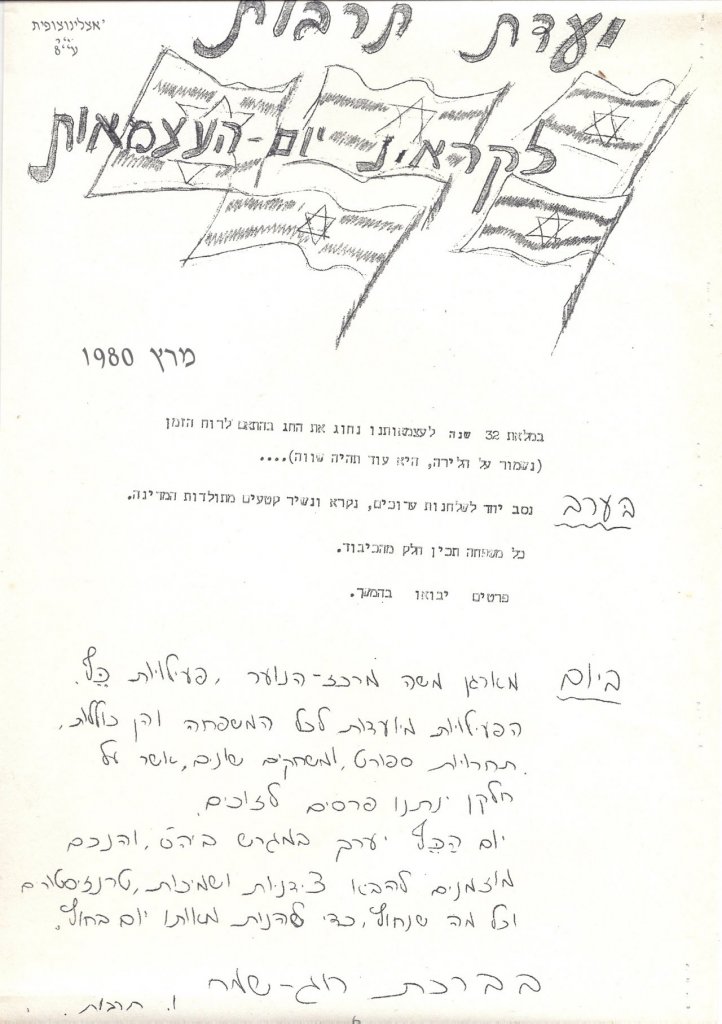 ועדת תרבות
לקראת יום-העצמאות
מרץ 1980
במלאת 32 שנה לעצמאותנו נחוג את החג בהתאם לרוח הזמן
(נשמור על הלירה, היא עוד תהיה שווה)....
בערב נסב יחד לשלחנות ערוכים, נקרא ונשיר קטעים מתולדות המדינה.
כל משפחה תכין חלק מהכיבוד.
פרטים יבואו בהמשך.
ביום מארגן משה מרכז-הנוער, פעילויות
הפעילויות מיועדות לכל המשפחה והן כוללות,
תחרויות ספורט, ומשחקים שונים, אשר על
חלקן ינתנו פרסים לזוכים.
יום יערך במגרש ביה"ס, והנכם
מוזמנים להביא צידניות ושמיכות, טרנזיסטורים
וכל מה שנחוץ, כדי להנות מאותו יום בחוץ.
בברכת חג-שמח
ו. תרבות.